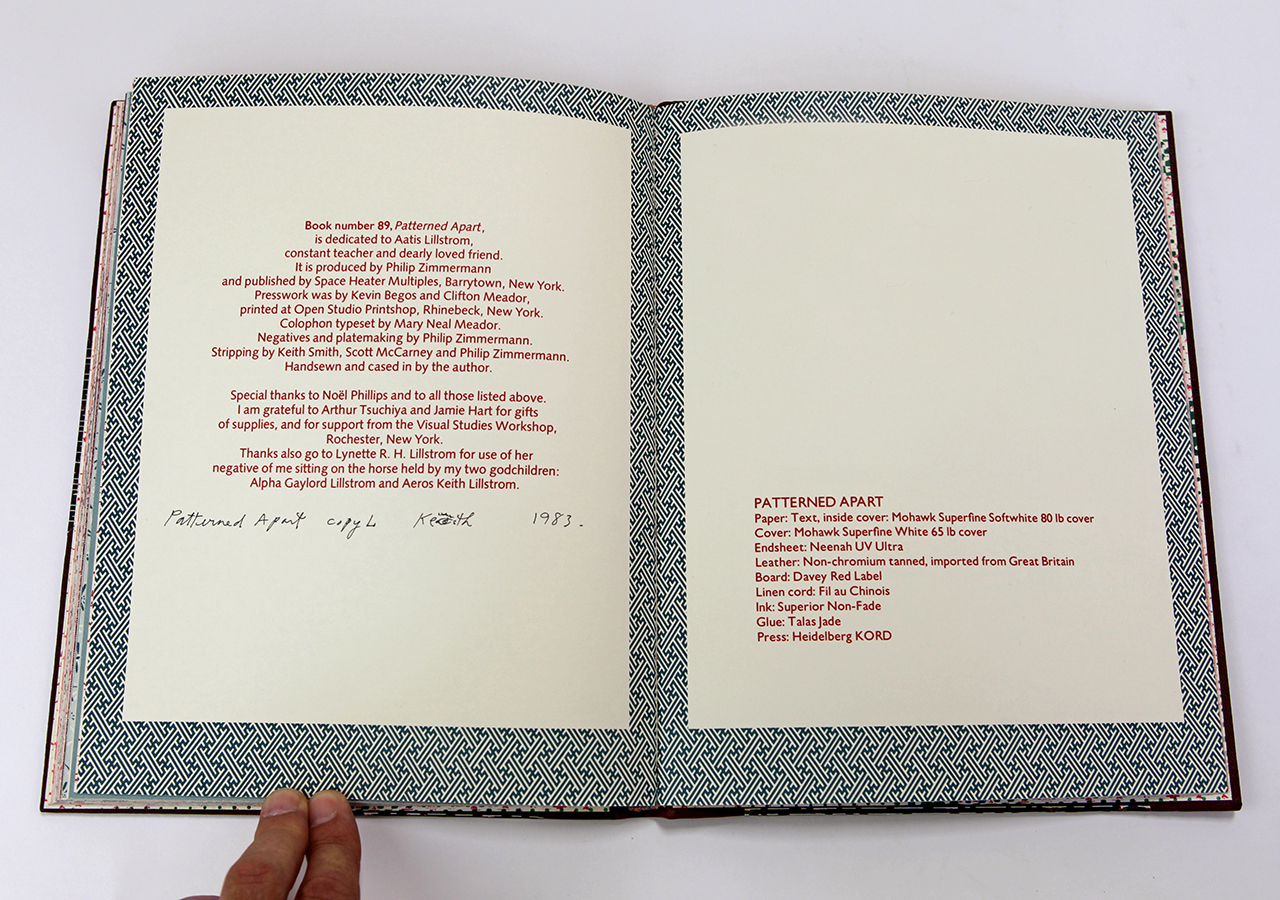 Book number 89, Patterned Apart,
is dedicated to Aatis Lillstrom,
constant teacher and dearly loved friend.
It is produced by Philip Zimmermann
and published by Space Heater Multiples, Barrytown, New York.
Presswork was by Kevin Begos and Clifton Meador,
printed at Open Studio Printshop, Rhinebeck, New York.
Colophon typeset by Mary Neal Meador.
Negatives and platemaking by Philip Zimmermann.
Stripping by Keith Smith, Scott McCarney and Philip Zimmermann.
Handsewn and cased in by the author.
Special thanks to Noël Phillips and to all those listed above.
I am grateful to Arthur Tsuchiya and Jamie Hart for gifts
of supplies, and for support from the Visual Studies Workshop,
Rochester, New York.
Thanks also go to Lynette R. H. Lillstrom for use of her
negative of me sitting on the horse held by my two godchildren:
Alpha Gaylord Lillstrom and Aeros Keith Lillstrom.
Patterned Apart copy Keith 1983.
PATTERNED APART
Paper: Text, inside cover: Mohawk Superfine Softwhite 80 lb cover
Cover: Mohawk Superfine White 65 lb cover
Endsheet: Neenah UV Ultra
Leather: Non-chromium tanned, imported from Great Britain
Board: Davey Red Label
Linen cord: Fil au Chinois
Ink: Superior Non-Fade
Glue: Talas Jade
Press: Heidelberg KORD